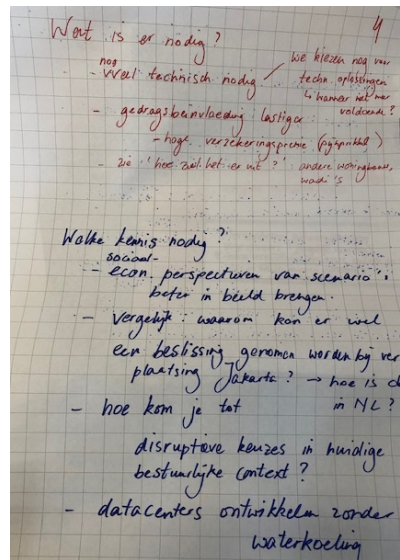 4
Wat is er nodig?
nog
- Veel technisch nodig
we kiezen nog voor
techn. oplossingen
↳ wanneer niet meer
voldoende?
- gedragsbeïnvloeding lastiger
- hoge verzekeringspremie (pijnprikkel)
- zie 'hoe ziet het er uit?' andere woningbouw,
wadi's
Welke kennis nodig?
sociaal-
- econ. perspectieven van scenario's
beter in beeld brengen.
- vergelijk: waarom kon er wel
een beslissing genomen worden bij ver
plaatsing Jakarta? → hoe is d
in NL?
- hoe kom je tot
disruptieve keuzes in huidige
bestuurlijke context?
- datacenters ontwikkelen zonder
waterkoeling